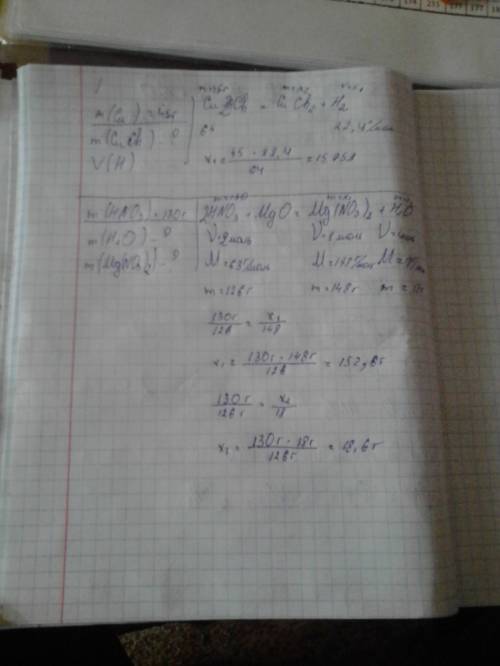 m(Cu) = 45г
m(CuCl₂) - ?
V(H)
Cu + 2HCl = CuCl₂ + H₂
64
22,4 л/моль
x₁ = 45 · 22,4 / 64 = 15,75л
m(HNO₃) = 130г
m(H₂O) - ?
m(Mg(NO₃)₂) - ?
2HNO₃ + MgO = Mg(NO₃)₂ + H₂O
V=2моль V=1моль V=1моль
M=63г/моль M=148г/моль M=18г/моль
m=126г m=148г m=18г
130г / 126 = x₁ / 148
x₁ = 130г · 148г / 126г = 152,6г
130г / 126г = x₂ / 18
x₂ = 130г · 18г / 126г = 18,6г